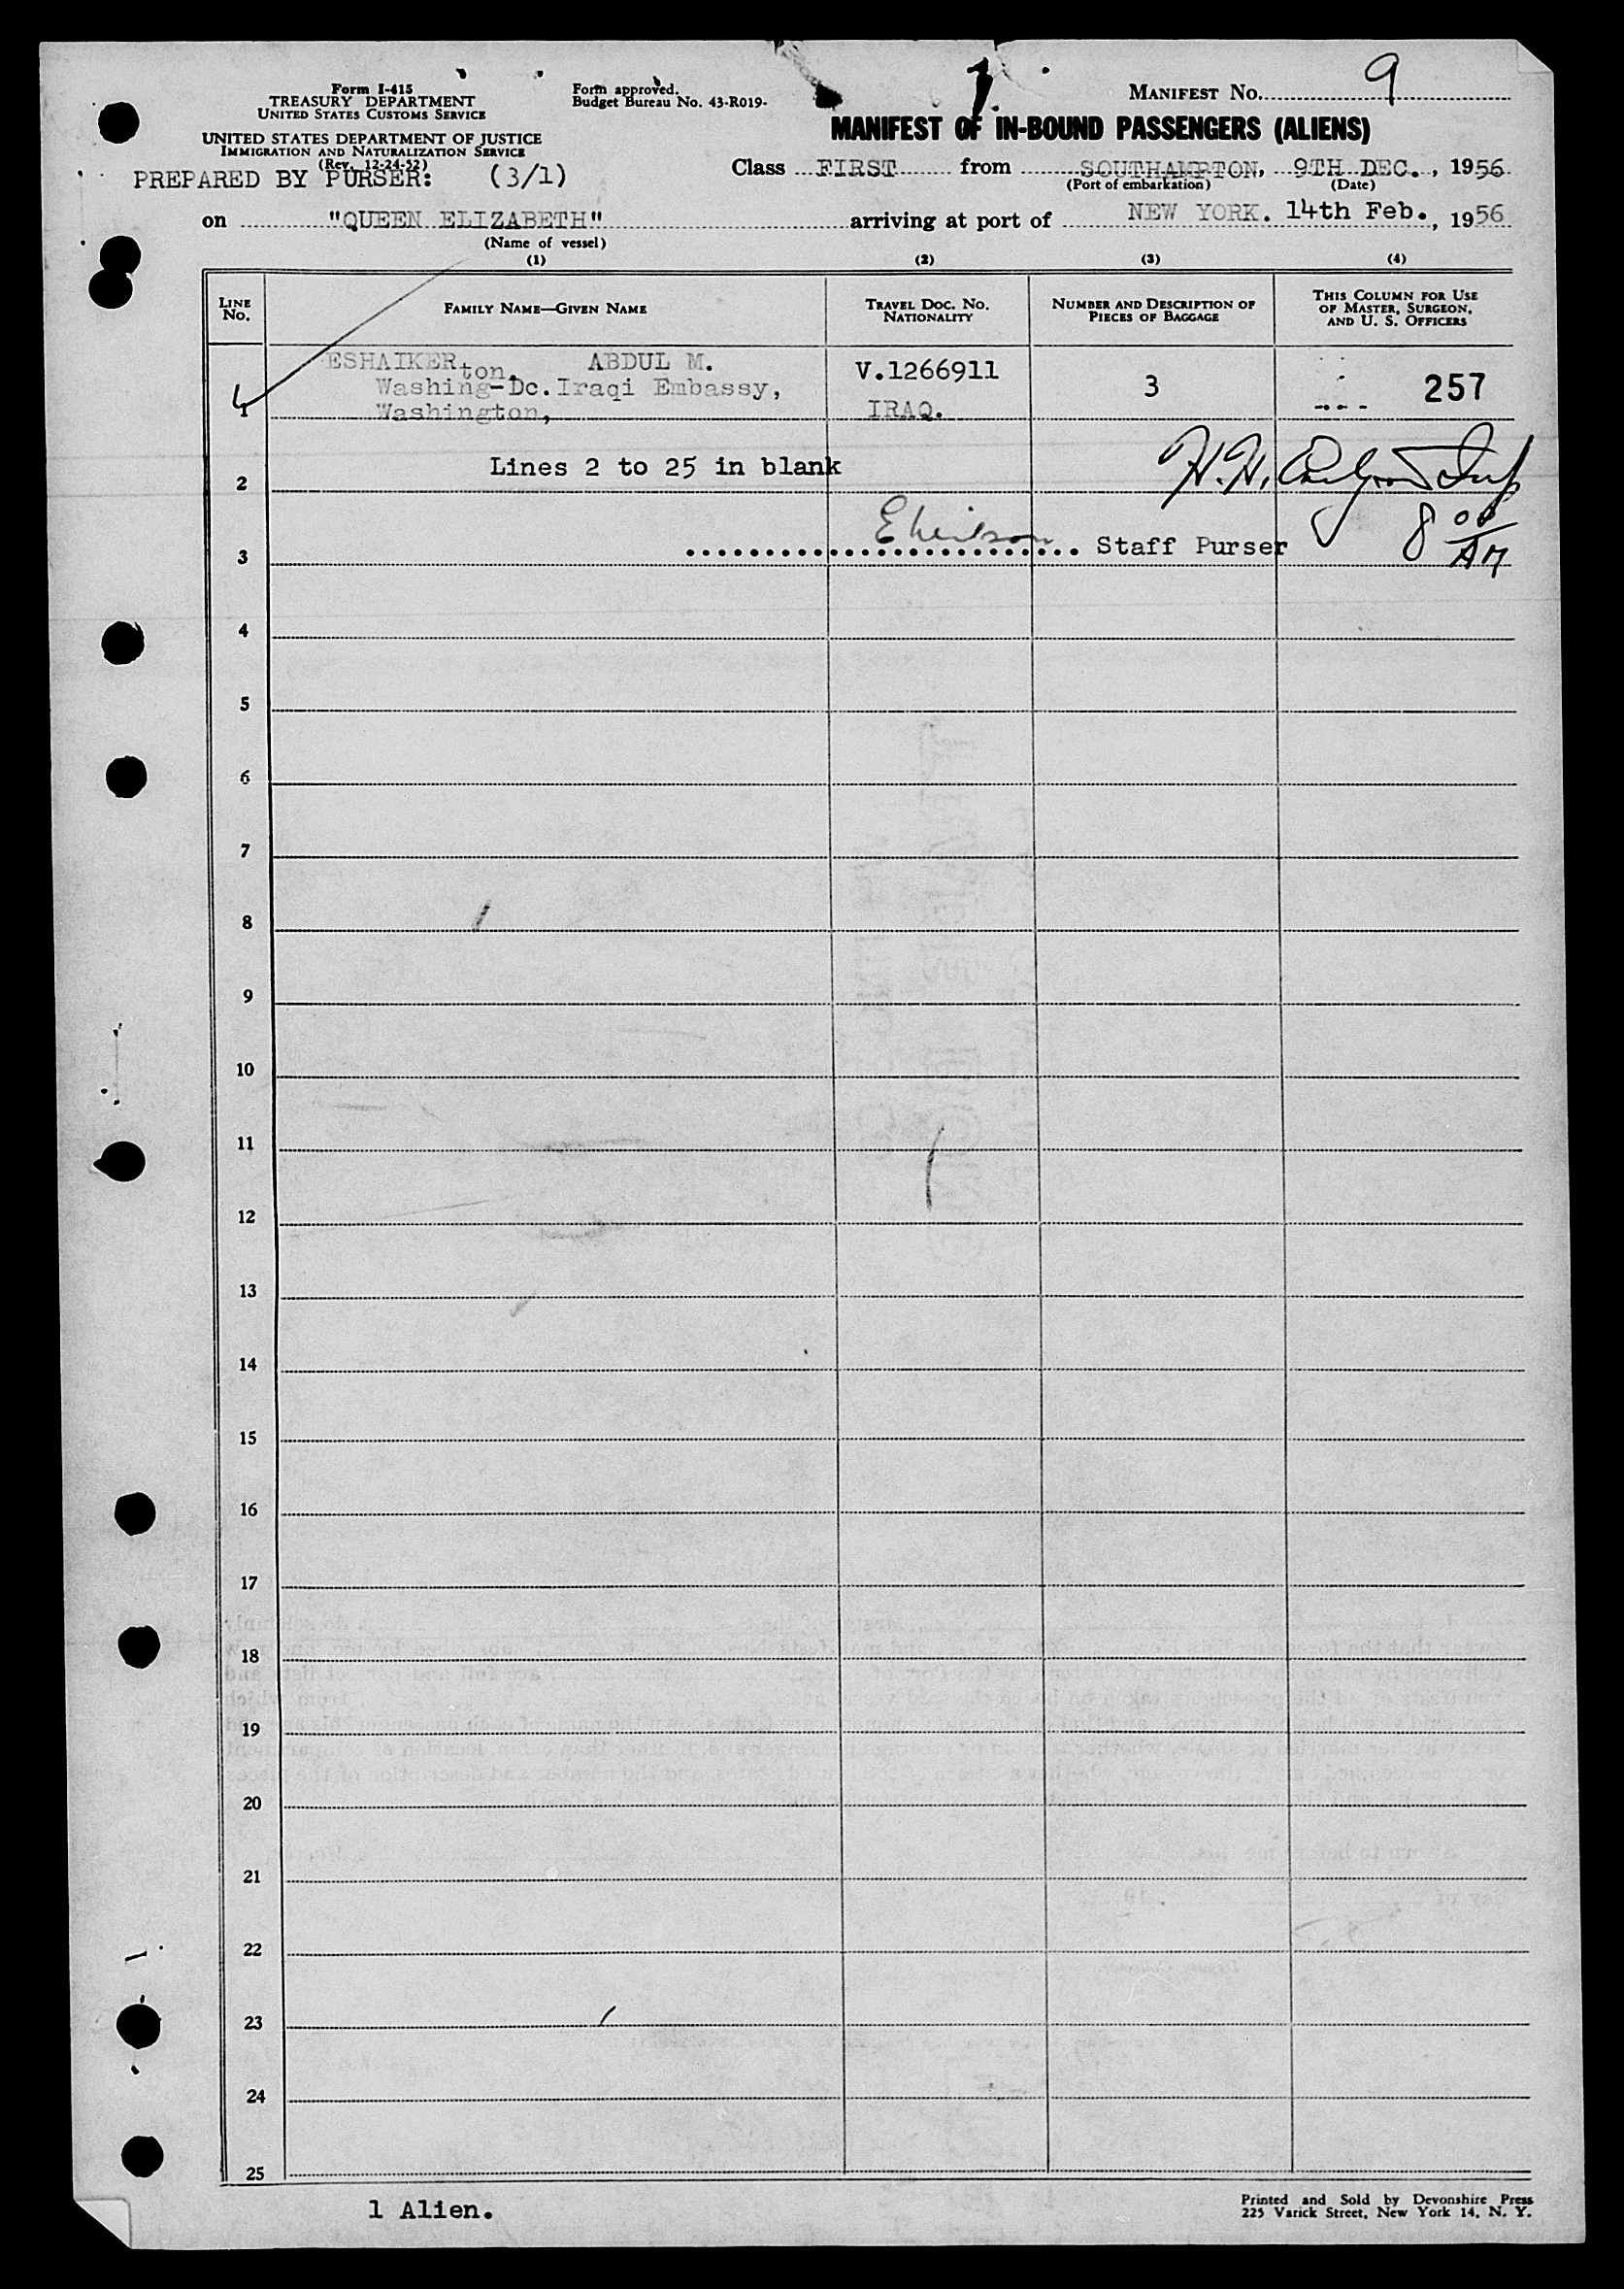 Form I-415
TREASURY DEPARTMENT
UNITED STATES CUSTOMS SERVICE
UNITED STATES DEPARTMENT OF JUSTICE
IMMIGRATION AND NATURALIZATION SERVICE
(Rev. 12-24-52)
PREPARED BY PURSER: (3/1)
Form approved.
Budget Bureau No. 43-R019-
1.
MANIFEST No. 9
MANIFEST OF IN-BOUND PASSENGERS (ALIENS)
Class FIRST from SOUTHAMPTON, 9TH DEC., 1956
(Port of embarkation) (Date)
on "QUEEN ELIZABETH" arriving at port of NEW YORK. 14th Feb., 1956
(Name of vessel)
(1) (2) (3) (4)
LINE No. FAMILY NAME—GIVEN NAME TRAVEL DOC. NO. NATIONALITY NUMBER AND DESCRIPTION OF PIECES OF BAGGAGE THIS COLUMN FOR USE OF MASTER, SURGEON, AND U. S. OFFICERS
ESHAIKER ABDUL M. V.1266911
ton.
Washing-Dc. Iraqi Embassy, 3 257
1 Washington, IRAQ.
Lines 2 to 25 in blank H.H.
2
Staff Purser 8 00 AM
3
4
5
6
7
8
9
10
11
12
13
14
15
16
17
18
19
20
21
22
23
24
25
1 Alien.
Printed and Sold by Devonshire Press
225 Varick Street, New York 14, N. Y.